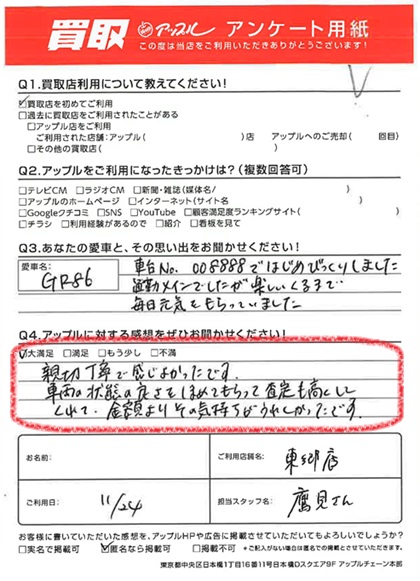 買取 アップル アンケート用紙
この度は当店をご利用いただきありがとうございます!
Q1.買取店利用について教えてください!
☑買取店を初めてご利用
□過去に買取店をご利用されたことがある
□アップル店をご利用
ご利用された店舗:アップル( )店 アップルへのご売却( 回目)
□その他の買取店( )
Q2.アップルをご利用になったきっかけは?(複数回答可)
□テレビCM □ラジオCM □新聞・雑誌(媒体名/ )
□アップルのホームページ □インターネット(サイト名 )
□Googleクチコミ □SNS □YouTube □顧客満足度ランキングサイト( )
□チラシ □利用経験があるので □紹介 □看板を見て
Q3.あなたの愛車と、その思い出をお聞かせください!
愛車名: GR86
車台No. 008888ではじめびっくりしました
通勤メインでしたが楽しくるまで
毎日元気をもらっていました
Q4.アップルに対する感想をぜひお聞かせください!
☑大満足 □満足 □もう少し □不満
親切丁寧で感じよかったです.
車両の状態の良さをほめてもらって査定も高くして
くれて、金額よりその気持ちがうれしかったです.
お名前: ご利用店舗名: 東郷店
ご利用日: 11/24 担当スタッフ名: 鷹見さん
お客様に書いていただいた感想を、アップルHPや広告に掲載させていただいてもよろしいでしょうか?
□実名で掲載可 ☑匿名なら掲載可 □掲載不可 *ご記入がない場合は匿名での掲載とさせていただきます。
東京都中央区日本橋1丁目16番11号日本橋Dスクエア9F アップルチェーン本部